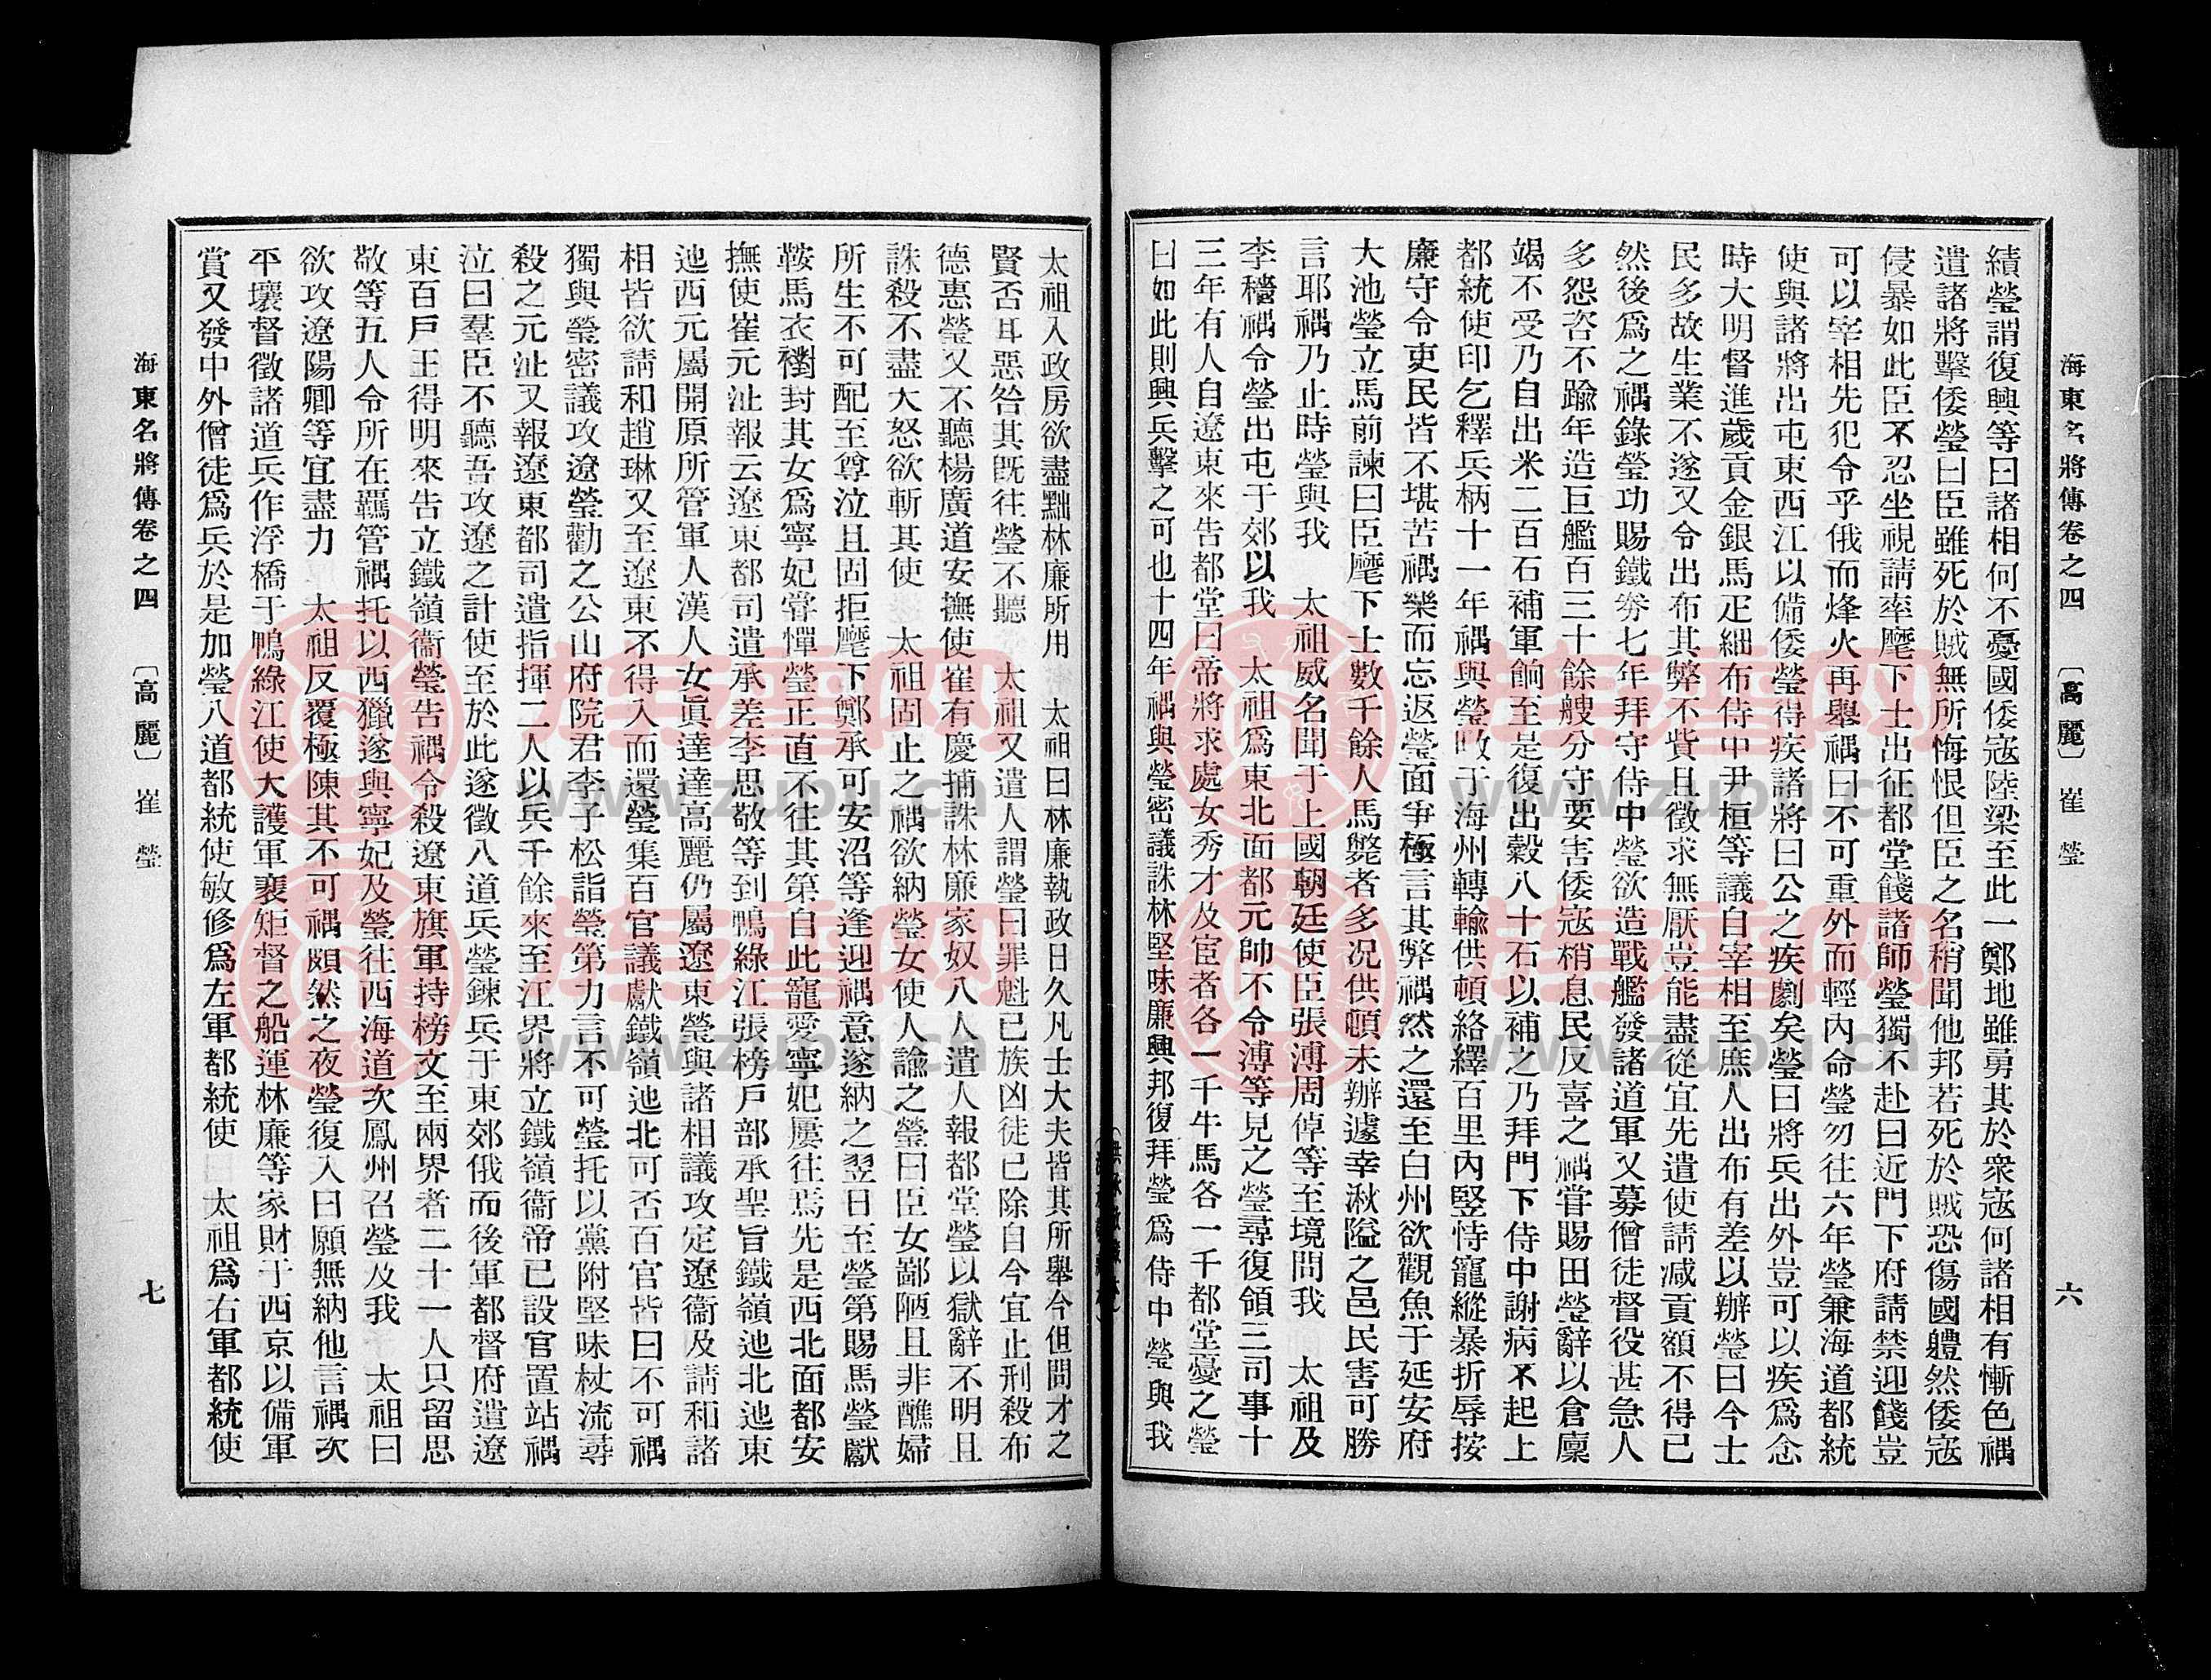 海東名將傳卷之四　〔高麗〕崔瑩　六
績瑩謂復興等曰諸相何不憂國倭寇陸梁至此一鄭地雖勇其於衆寇何諸相有慚色禑
遣諸將擊倭瑩曰臣雖死於賊無所悔恨但臣之名稍聞他邦若死於賊恐傷國體然倭寇
侵暴如此臣不忍坐視請率麾下士出征都堂餞諸師瑩獨不赴曰近門下府請禁迎餞豈
可以宰相先犯令乎俄而烽火再舉禑曰不可重外而輕內命瑩勿往六年瑩兼海道都統
使與諸將出屯東西江以備倭瑩得疾諸將曰公之疾劇矣瑩曰將兵出外豈可以疾爲念
時大明督進歲貢金銀馬疋細布侍中尹桓等議自宰相至庶人出布有差以辦瑩曰今士
民多故生業不遂又令出布其弊不貲且徵求無厭豈能盡從宜先遣使請减貢額不得已
然後爲之禑錄瑩功賜鐵券七年拜守侍中瑩欲造戰艦發諸道軍又募僧徒督役甚急人
多怨咨不踰年造巨艦百三十餘艘分守要害倭寇稍息民反喜之禑嘗賜田瑩辭以倉廩
竭不受乃自出米二百石補軍餉至是復出穀八十石以補之乃拜門下侍中謝病不起上
都統使印乞釋兵柄十一年禑與瑩畋于海州轉輸供頓絡繹百里內竪恃寵縱暴折辱按
廉守令吏民皆不堪苦禑樂而忘返瑩面爭極言其弊禑然之還至白州欲觀魚于延安府
大池瑩立馬前諫曰臣麾下士數千餘人馬斃者多况供頓未辦遽幸湫隘之邑民害可勝
言耶禑乃止時瑩與我　太祖威名聞于上國朝廷使臣張溥周倬等至境問我　太祖及
李穡禑令瑩出屯于郊以我　太祖爲東北面都元帥不令溥等見之瑩尋復領三司事十
三年有人自遼東來告都堂曰帝將求處女秀才及宦者各一千牛馬各一千都堂憂之瑩
曰如此則興兵擊之可也十四年禑與瑩密議誅林堅味廉興邦復拜瑩爲侍中瑩與我
太祖入政房欲盡黜林廉所用　太祖曰林廉執政日久凡士大夫皆其所舉今但問才之
賢否耳惡咎其旣往瑩不聽　太祖又遣人謂瑩曰罪魁已族凶徒已除自今宜止刑殺布
德惠瑩又不聽楊廣道安撫使崔有慶捕誅林廉家奴八人遣人報都堂瑩以獄辭不明且
誅殺不盡大怒欲斬其使　太祖固止之禑欲納瑩女使人諭之瑩曰臣女鄙陋且非醮婦
所生不可配至尊泣且固拒麾下鄭承可安沼等逢迎禑意遂納之翌日至瑩第賜馬瑩獻
鞍馬衣襨封其女爲寧妃嘗憚瑩正直不往其第自此寵愛寧妃屢往焉先是西北面都安
撫使崔元沚報云遼東都司遣承差李思敬等到鴨綠江張榜戶部承聖旨鐵嶺迆北迆東
迆西元屬開原所管軍人漢人女眞達達高麗仍屬遼東瑩與諸相議攻定遼衞及請和諸
相皆欲請和趙琳又至遼東不得入而還瑩集百官議獻鐵嶺迆北可否百官皆曰不可禑
獨與瑩密議攻遼瑩勸之公山府院君李子松詣瑩第力言不可瑩托以黨附堅味杖流尋
殺之元沚又報遼東都司遣指揮二人以兵千餘來至江界將立鐵嶺衞帝已設官置站禑
泣曰羣臣不聽吾攻遼之計使至於此遂徵八道兵瑩鍊兵于東郊俄而後軍都督府遣遼
東百戶王得明來告立鐵嶺衞瑩告禑令殺遼東旗軍持榜文至兩界者二十一人只留思
敬等五人令所在羈管禑托以西獵遂與寧妃及瑩往西海道次鳳州召瑩及我　太祖曰
欲攻遼陽卿等宜盡力　太祖反覆極陳其不可禑頗然之夜瑩復入曰願無納他言禑次
平壤督徵諸道兵作浮橋于鴨綠江使大護軍裵矩督之船運林廉等家財于西京以備軍
賞又發中外僧徒爲兵於是加瑩八道都統使敏修爲左軍都統使　太祖爲右軍都統使
海東名將傳卷之四　〔高麗〕崔瑩　七
族譜网
www.zupu.cn
族譜网
www.zupu.cn
族譜网
www.zupu.cn
族譜网
www.zupu.cn